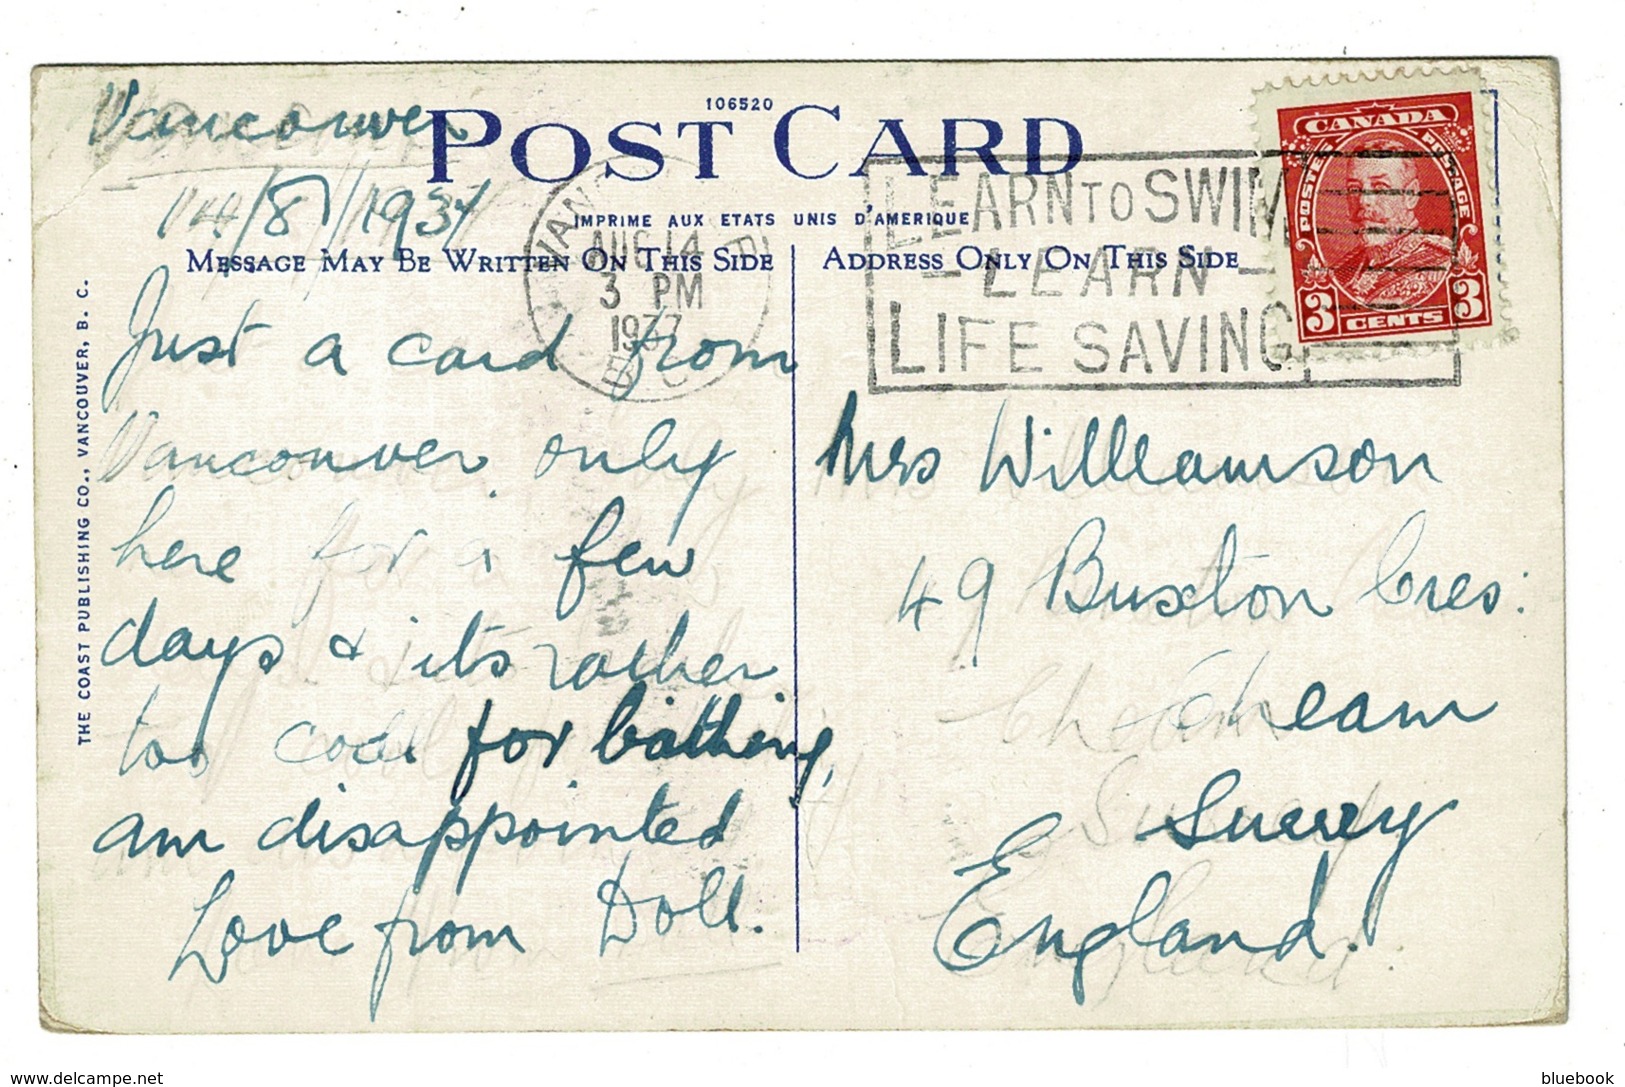 Vancouver
14/8/1937
106520
POST CARD
IMPRIME AUX ETATS UNIS D'AMERIQUE
MESSAGE MAY BE WRITTEN ON THIS SIDE
ADDRESS ONLY ON THIS SIDE
VANCOUVER
AUG 14
3 PM
1937
B.C.
LEARN TO SWIM
- LEARN -
LIFE SAVING
CANADA
POSTES POSTAGE
3 CENTS 3
THE COAST PUBLISHING CO., VANCOUVER, B. C.
Just a card from
Vancouver, only
here for a few
days & its rather
too cool for bathing,
am disappointed
Love from Doll.
Mrs Williamson
49 Buxton Cres:
Cheam
Surrey
England.
www.delcampe.net
bluebook